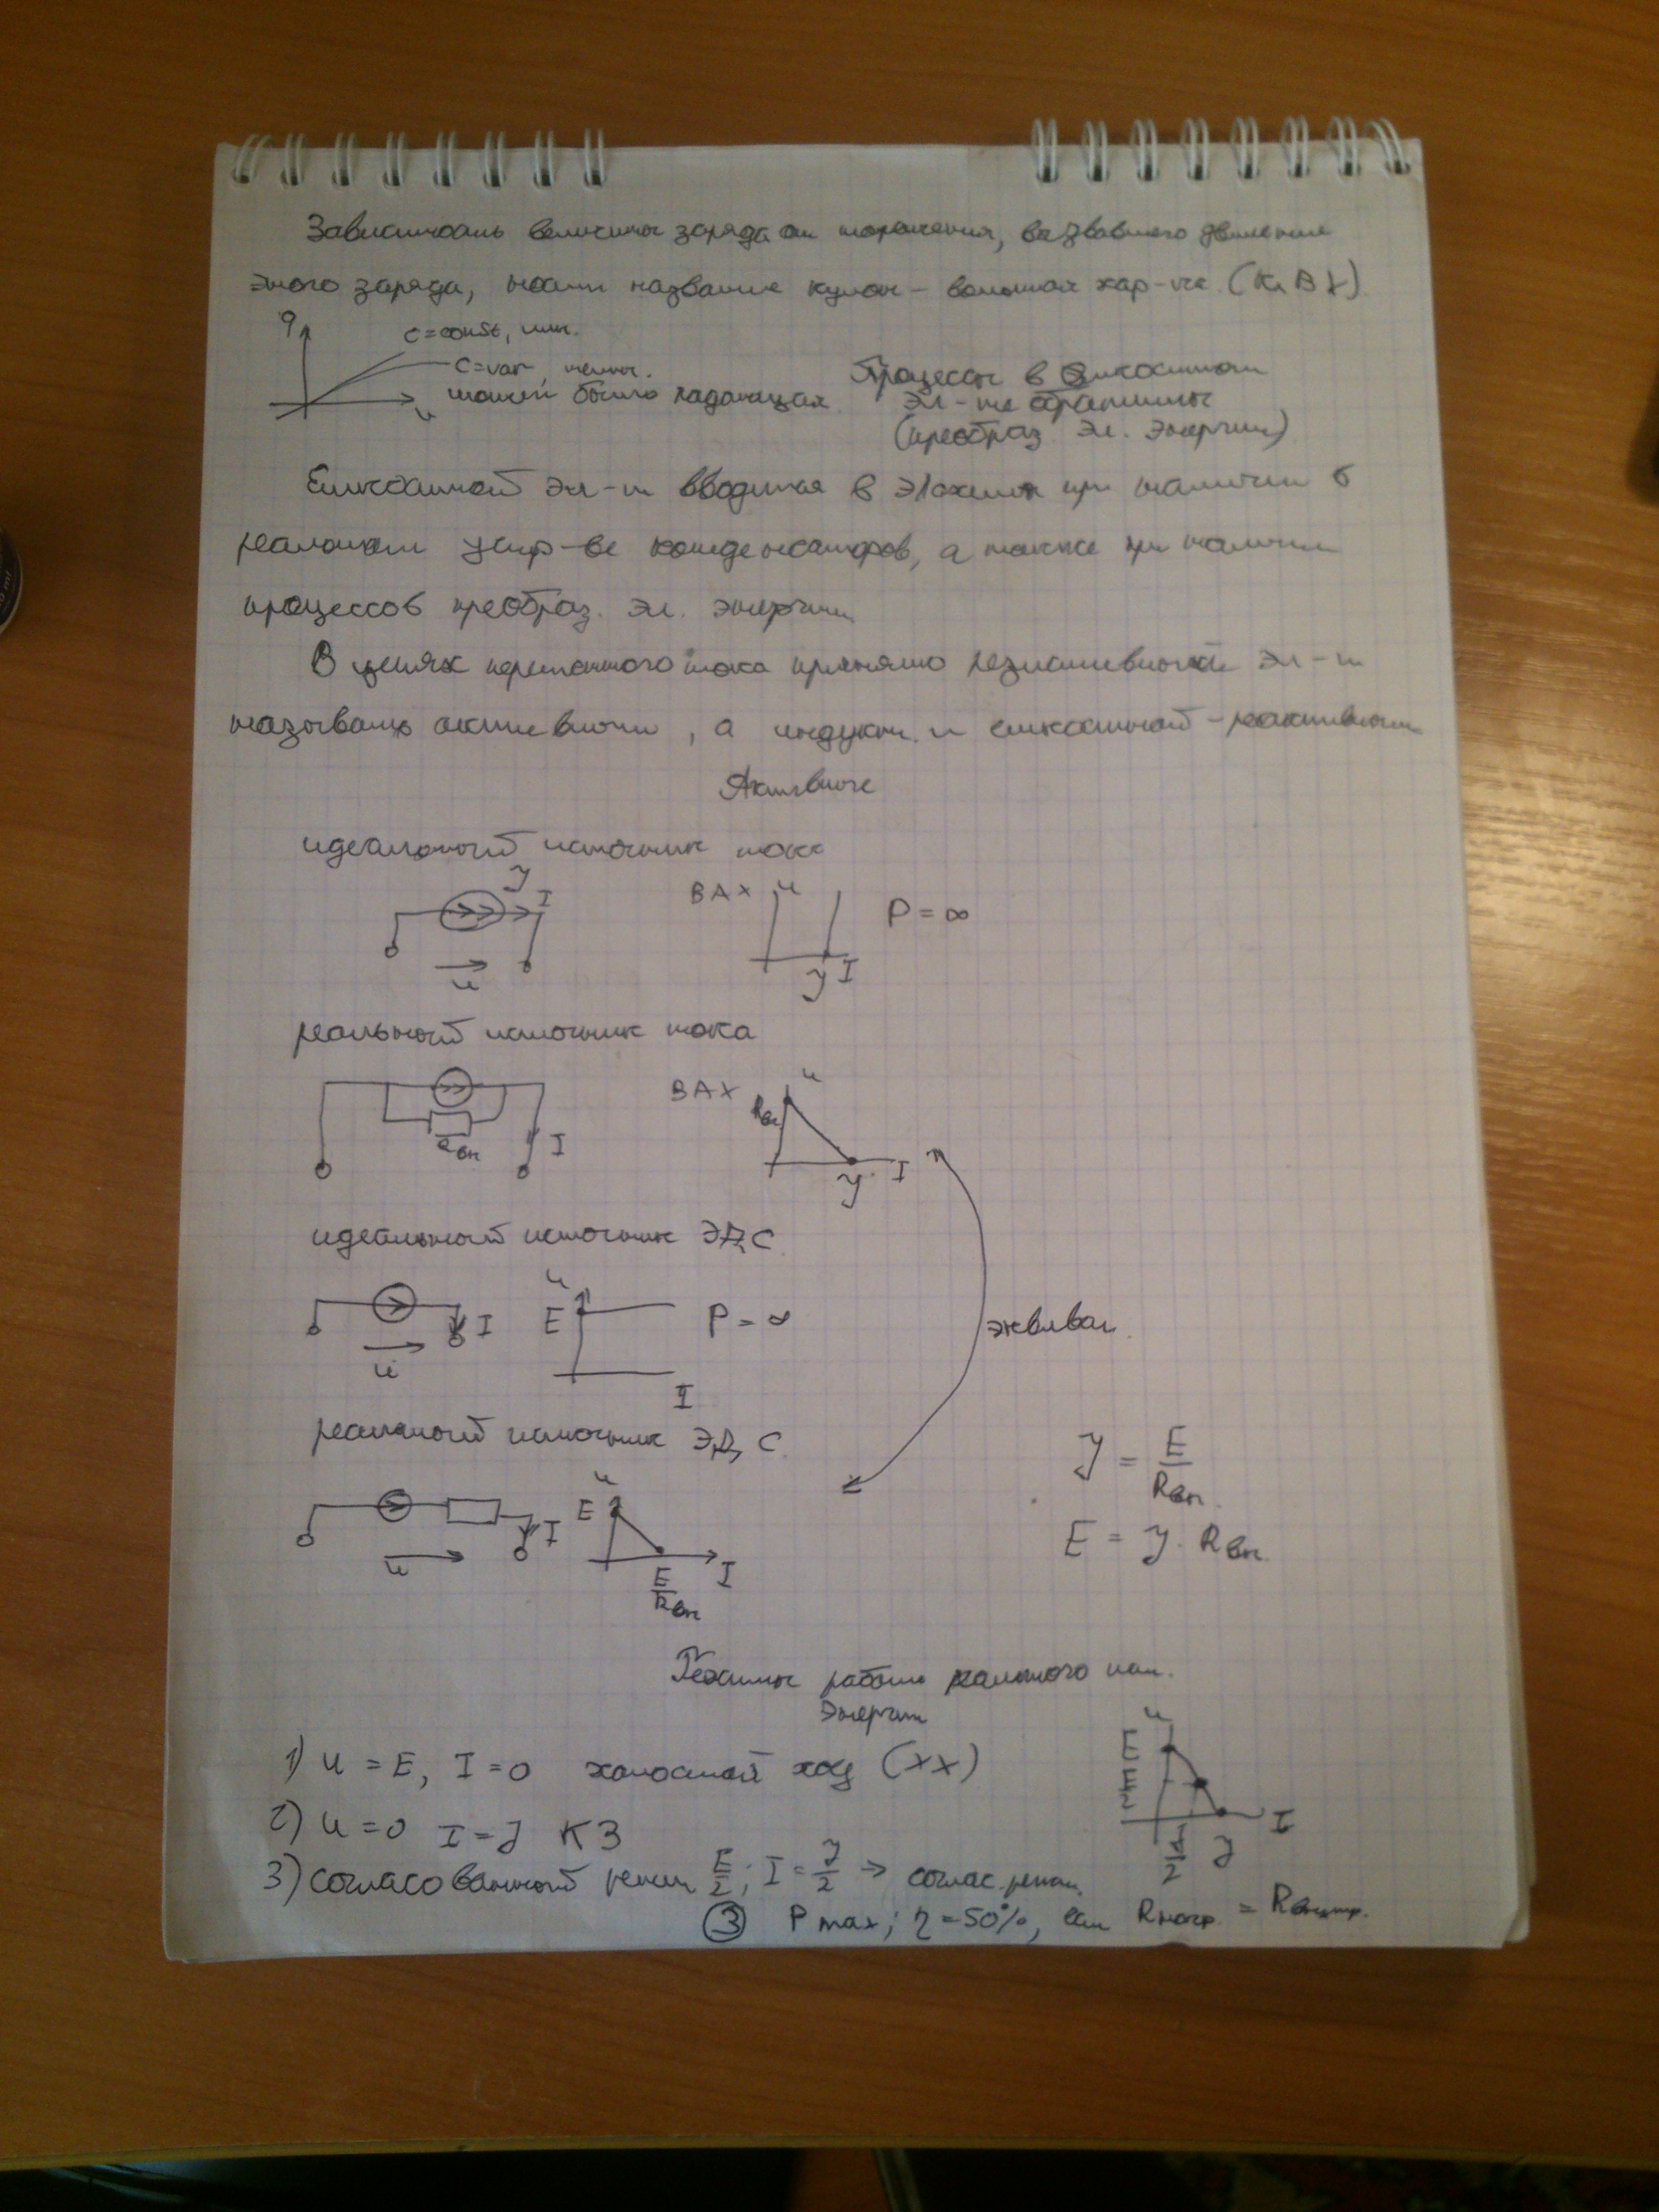 Зависимость величины заряда от напряжения, вызвавшего движение
этого заряда, носит название кулон-вольтная хар-ка. (КлВХ)
q
C=const, лин.
C=var, нелин.
может быть падающая
u
Процессы в емкостном
эл-те обратимы
(преобраз. эл. энергии)
Емкостной эл-т вводится в эл схемы при наличии в
реальном устр-ве конденсаторов, а также при наличии
процессов преобраз. эл. энергии
В цепях переменного тока принято резистивный эл-т
называть активным, а индукт. и емкостной - реактивными
Активные
идеальный источник тока
J I
u
ВАХ u
J I
P = ∞
реальный источник тока
Rвн I
ВАХ u
Rвн
J I
идеальный источник ЭДС
I
u
u
E
I
P = ∞
эквивал.
реальный источник ЭДС
I
u
u
E
I
E/Rвн
J = E/Rвн.
E = J · Rвн.
Режимы работы реального ист.
энергии
1) u = E, I = 0 холостой ход (XX)
2) u = 0 I = J КЗ
3) согласованный режим E/2; I = J/2 → соглас. режим.
u
E
E/2
I
J/2 J
③ P max; η = 50%, если Rнагр. = Rвнутр.